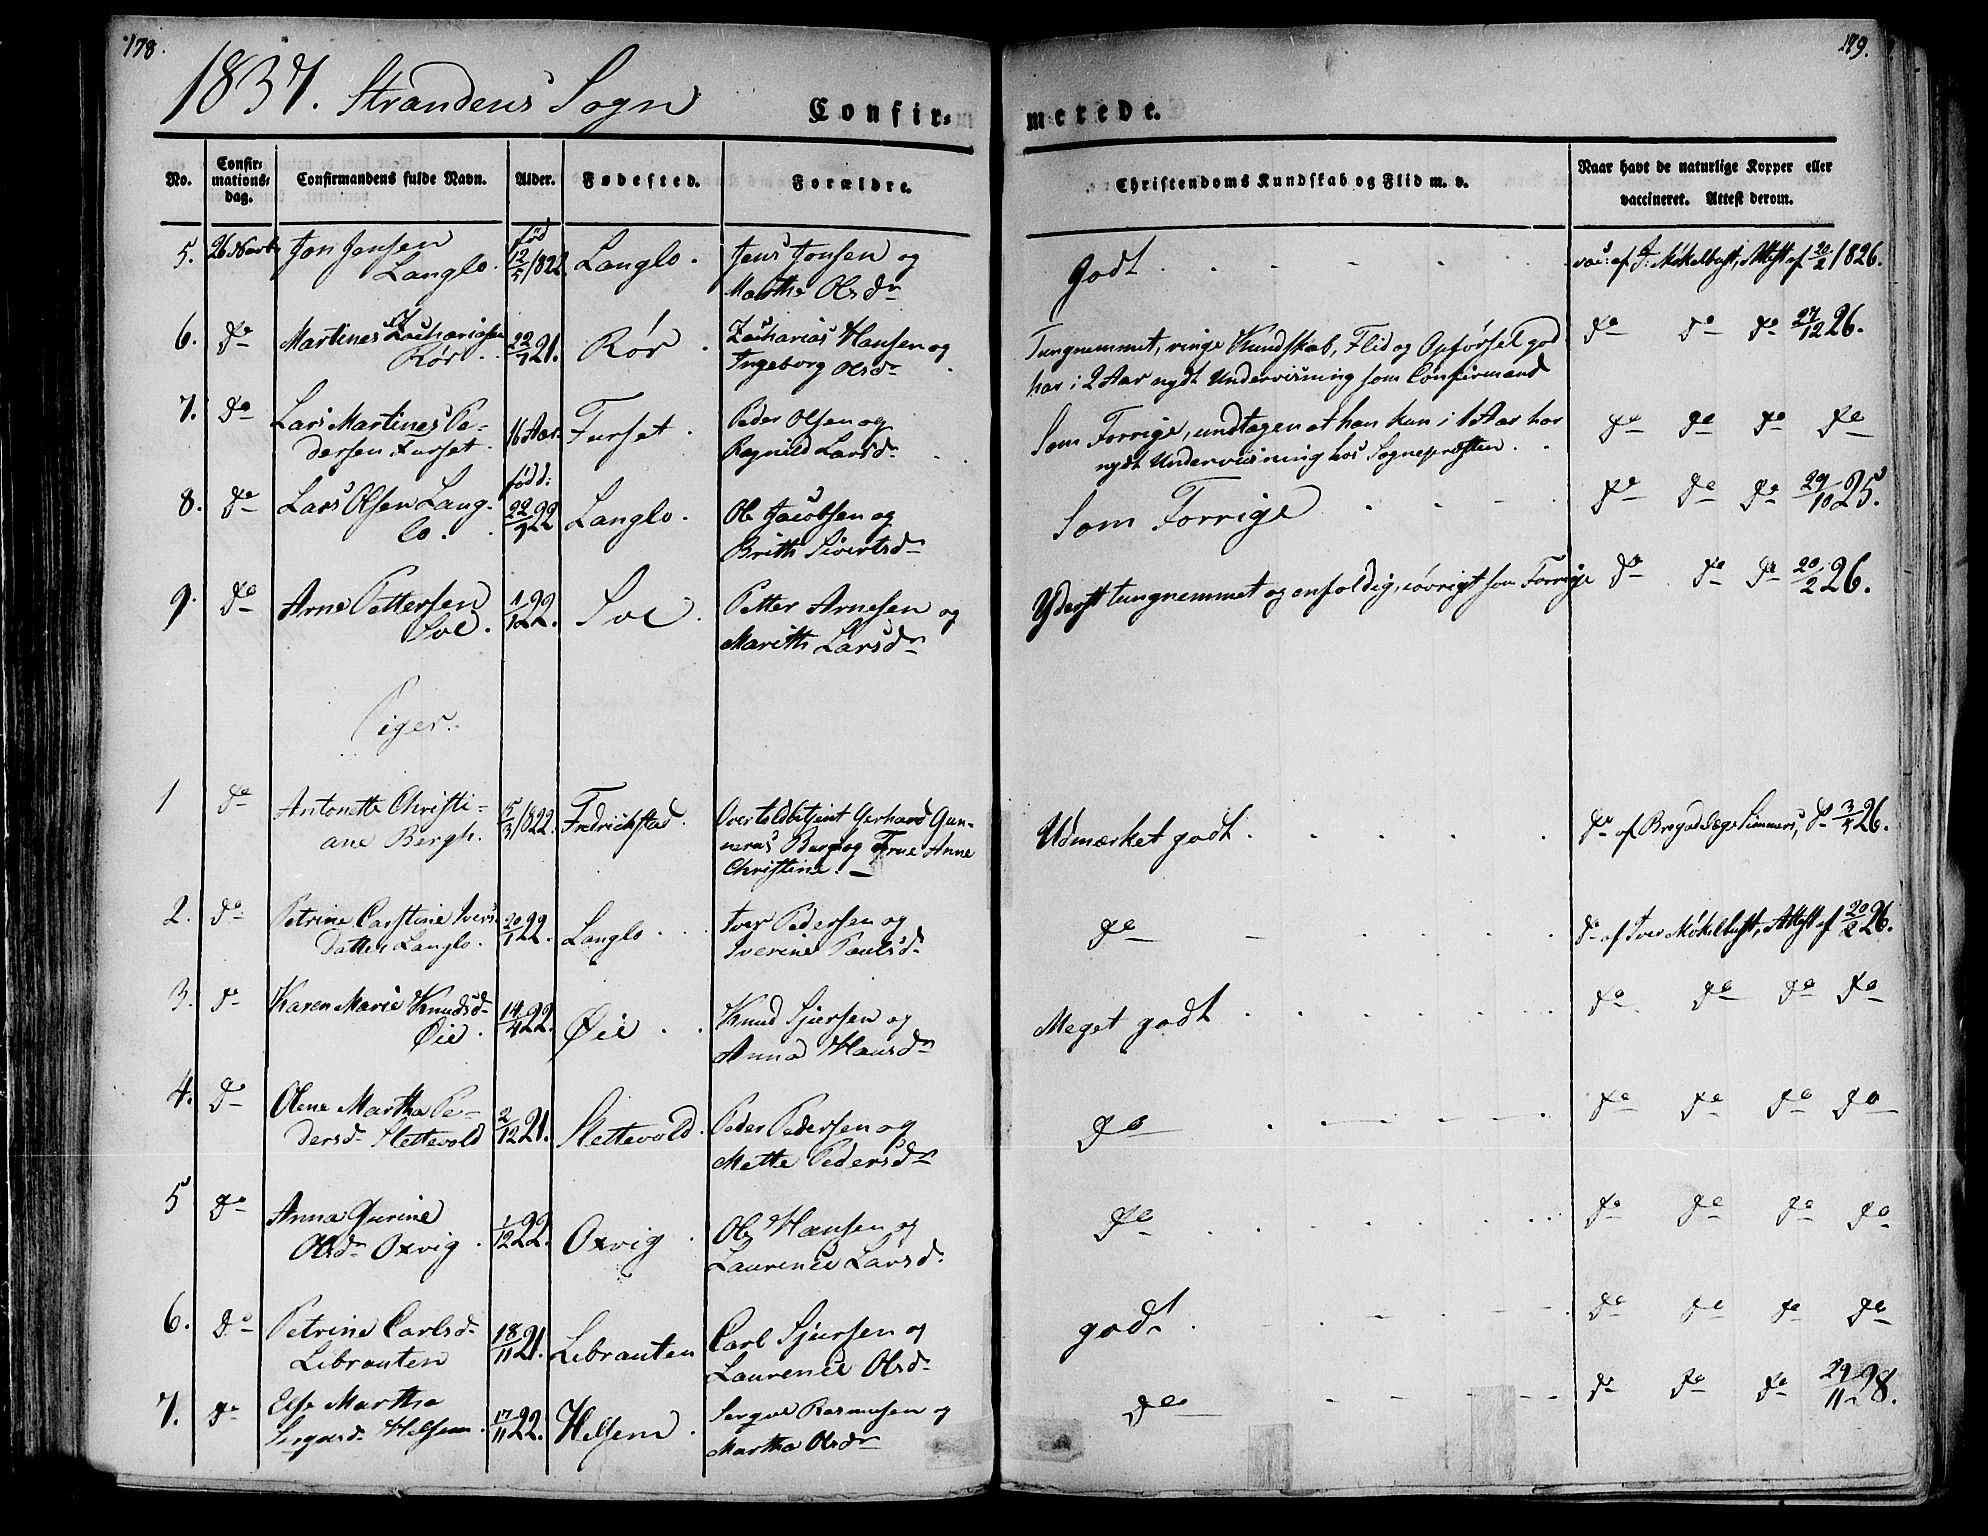 178.
179.
1837. Strandens Sogn
Confir=
merede.
No.
Confir= mations= dag.
Confirmandens fulde Navn.
Alder.
Fødested.
Forældre.
Christendoms Kundskab og Flid m. v.
Naar havt de naturlige Kopper eller
vaccineret. Attest derom.
5. 26 Novbr Jon Jensen
Langlo. fød 12/5 1822 Langlo. Jens Jonsen og
Martha Olsdr
Godt
vac: af J: Møkelbust, Attest af 20/2 1826.
6. Do Martines Zachariasen
Rør. 22/7 21. Rør. Zacharias Hansen og
Ingeborg Olsdr
Tungnemmet, ringe Kundskab, Flid og Opførsel god
har i 2 Aar nydt Underviisning som Confirmand
Do Do Do 27/12 26.
7. Do Lars Martines Pe-
dersen Furset. 16 Aar Furset. Peder Olsen og
Ragnild Larsdr
Som Forrige, undtagen at han kun i 1 Aar har
nydt Underviisning hos Sognepræsten.
Do Do Do Do
8. Do Lars Olsen Lang-
lo. fødd: 22/7 22 Langlo. Ole Jacobsen og
Brithe Sivertsdr
Som Forrige
Do Do Do 29/10 25.
9. Do Arne Pettersen
Soe. 1/12 22. Soe. Petter Arnesen og
Marithe Larsdr
Yderst tungnemmet og enfoldig, iøvrigt som Forrige
Do Do Do 20/2 26.
Piger.
1 Do Antonette Christi=
ane Bergh. 15/3 1822. Fredrichstad. Overtoldbetjent Gerhard Gun-
nerus Bergh og Frue Anne
Christine.
Udmærket godt.
Do af Brigadelæge Simmers, Do 3/5 26.
2. Do Petrine Carstine Ivers-
Datter Langlo. 20/1 22. Langlo. Iver Pedersen og
Iverine Paulsdr
Do
Do af Iver Møkelbust, Attest af 20/2 26.
3. Do Karen Marie Knudsdr
Øie. 14/4 22. Øie. Knud Sjursen og
Anna Hansdr
Meget godt
Do Do Do Do
4. Do Olene Martha Pe-
dersdr Slettevold 2/12 21. Slettevold. Peder Pedersen og
Mette Pedersdr
Do
Do Do Do Do
5 Do Anna Gurine
Olsdr Oxvig. 1/12 22. Oxvig. Ole Hansen og
Laurence Larsdr
Do
Do Do Do Do
6. Do Petrine Carlsdr
Librauten 18/11 21. Librauten Carl Sjursen og
Laurence Olsdr
godt.
Do Do Do Do
7. Do Else Martha
Helsem. 17/11 22. Helsem. Rasmusen og
Martha Olsdr
Do
Do Do Do 29/11 28.